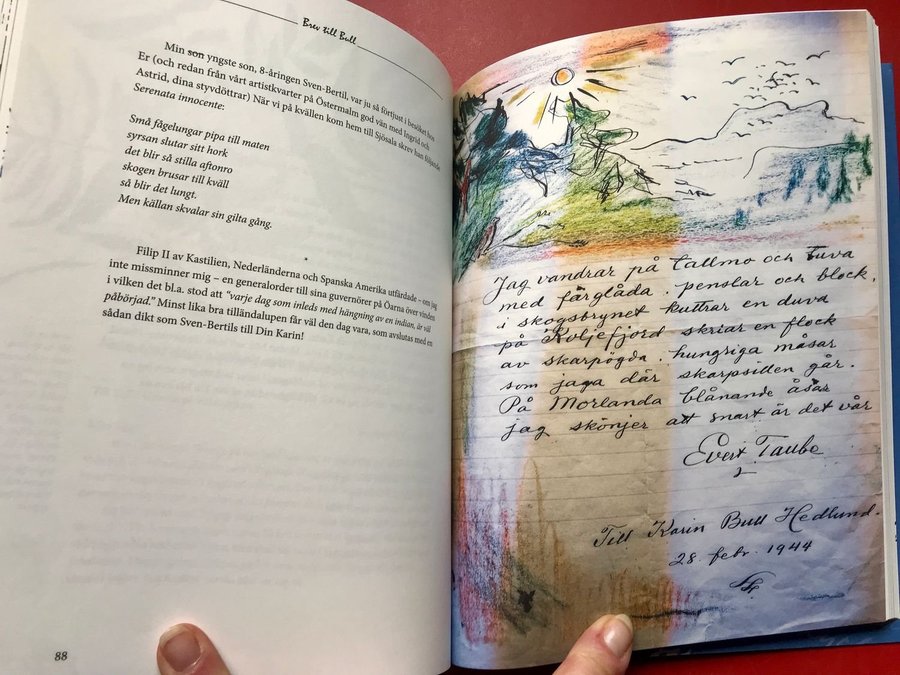 Brev till Bull
Min son yngste son, 8-åringen Sven-Bertil, var ju så förtjust i besöket hos
Er (och redan från vårt artistkvarter på Östermalm god vän med Ingrid och
Astrid, dina styvdöttrar) När vi på kvällen kom hem till Sjösala skrev han följande
Serenata innocente:
Små fågelungar pipa till maten
syrsan slutar sitt hork
det blir så stilla aftonro
skogen brusar till kväll
så blir det lungt.
Men källan skvalar sin gilta gång.
Filip II av Kastilien, Nederländerna och Spanska Amerika utfärdade – om jag
inte missminner mig – en generalorder till sina guvernörer på Öarna över vinden
i vilken det bl.a. stod att "varje dag som inleds med hängning av en indian, är väl
påbörjad." Minst lika bra tilländalupen får väl den dag vara, som avslutas med en
sådan dikt som Sven-Bertils till Din Karin!
88
Jag vandrar på tallmo och tuva
med färglåda, penslar och block,
i skogsbrynet kuttrar en duva
på Koljefjord skriar en flock
av skarpögda, hungriga måsar
som jaga där skarpsillen går.
På Morlanda blånande åsar
jag skönjer att snart är det vår
Evert Taube
Till Karin Bull Hedlund.
28. febr. 1944